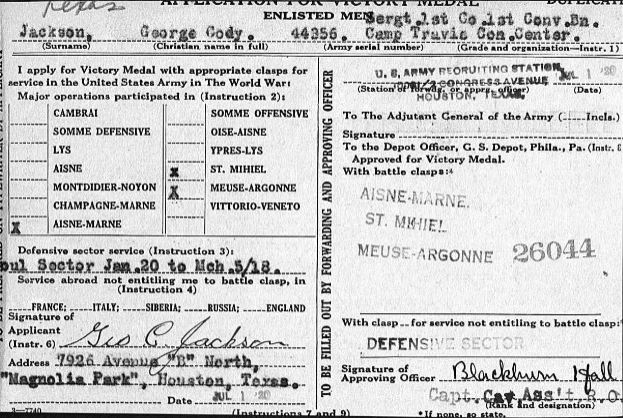 Texas
APPLICATION FOR VICTORY MEDAL
ENLISTED MEN
Sergt. 1st Co. 1st Conv. Bn.
Jackson, George Cody. 44356. Camp Travis Con. Center.
(Surname) (Christian name in full) (Army serial number) (Grade and organization—Instr. 1)
I apply for Victory Medal with appropriate clasps for
service in the United States Army in The World War:
Major operations participated in (Instruction 2):
CAMBRAI
SOMME DEFENSIVE
LYS
AISNE
MONTDIDIER-NOYON
CHAMPAGNE-MARNE
X AISNE-MARNE
SOMME OFFENSIVE
OISE-AISNE
YPRES-LYS
X ST. MIHIEL
X MEUSE-ARGONNE
VITTORIO-VENETO
Defensive sector service (Instruction 3):
oul Sector Jan. 20 to Mch. 5/18.
Service abroad not entitling me to battle clasp, in
(Instruction 4)
FRANCE; ITALY; SIBERIA; RUSSIA; ENGLAND
Signature of
Applicant
(Instr. 6) Geo C. Jackson
Address 7926 Avenue "B" North,
"Magnolia Park", Houston, Texas.
Date JUL 1 '20
3—7740 (Instructions 7 and 9)
TO BE FILLED OUT BY FORWARDING AND APPROVING OFFICER
U. S. ARMY RECRUITING STATION,
CONGRESS AVENUE
JUL 1 '20
(Station of forwdg. or apprg. officer) (Date)
HOUSTON, TEXAS.
To The Adjutant General of the Army (Incls.)
Signature
To the Depot Officer, G. S. Depot, Phila., Pa. (Instr.
Approved for Victory Medal.
With battle clasps:*
AISNE-MARNE.
ST. MIHIEL
MEUSE-ARGONNE 26044
With clasp for service not entitling to battle clasp:*
DEFENSIVE SECTOR
Signature of
Approving Officer Blackburn Hall
Capt. Cav. Ass't R. O.
(Rank and designation)
* If none, so state.